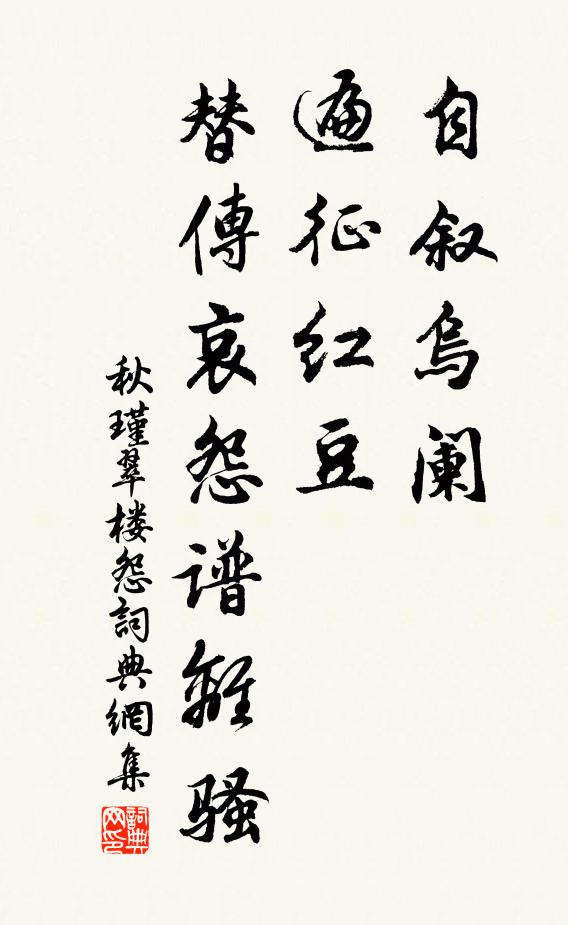 自叙乌阑
遍征红豆
替傳哀怨谱離骚
秋瑾翠楼怨詞典網集
詞典网印